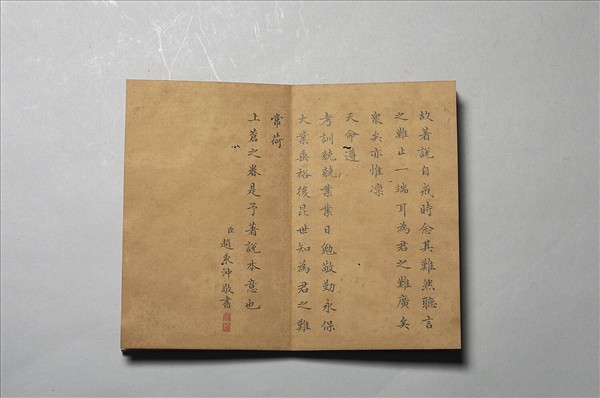 故著說自戒時念其難然聽言
之難止一端耳為君之難廣矣
衆矣亦惟凜
天命遵
考訓兢兢業業日勉敬勤永保
大業垂裕後昆世知為君之難
常荷
上蒼之眷是予著說本意也
臣趙秉沖敬書